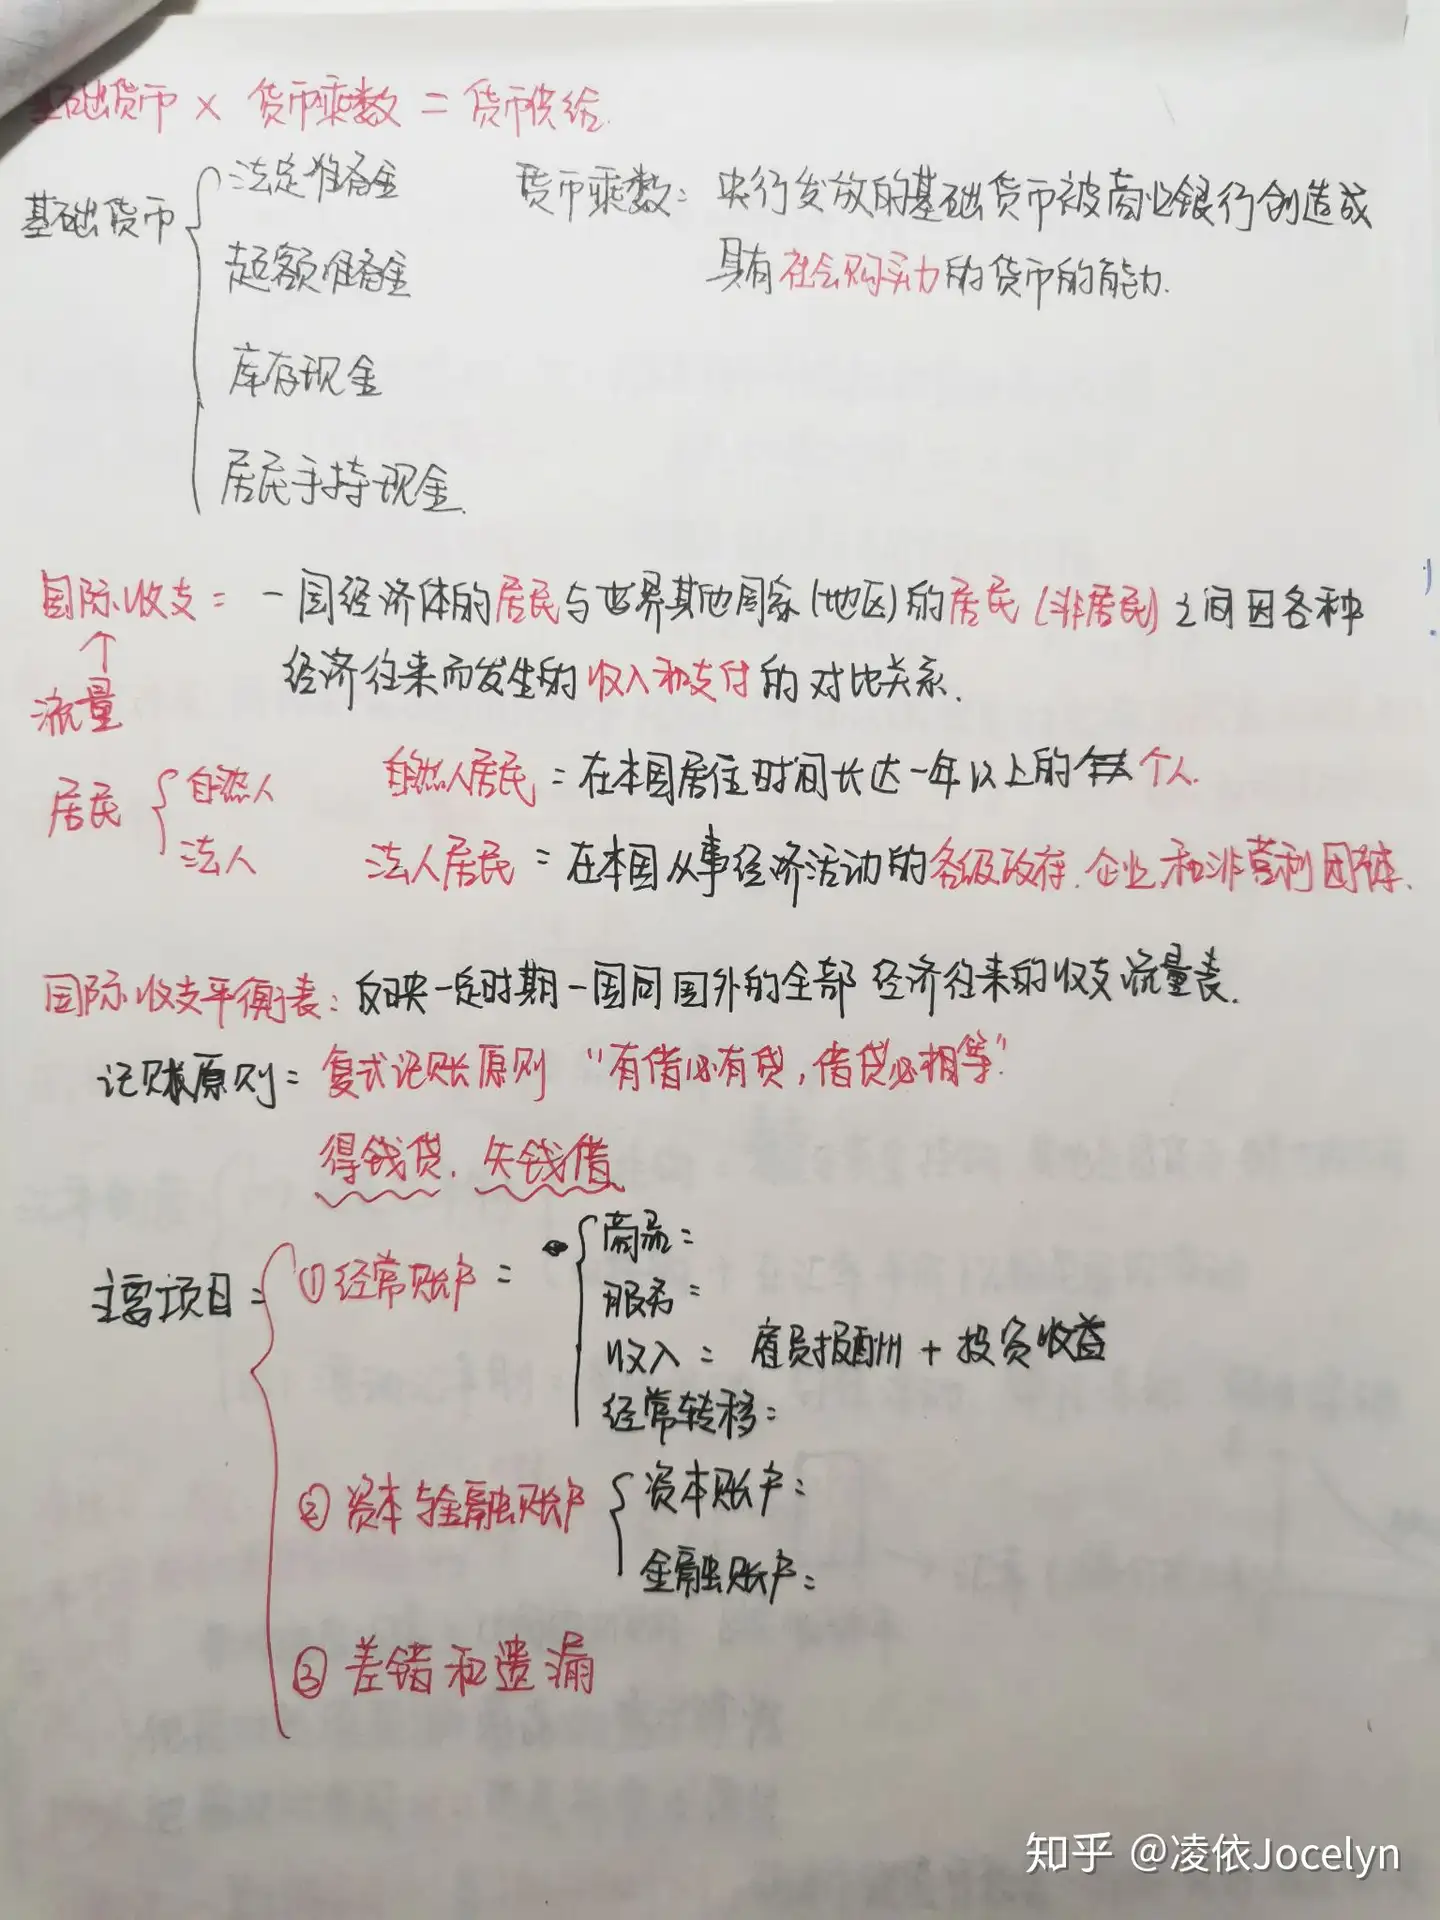 基础货币 × 货币乘数 = 货币供给.
基础货币
法定准备金
超额准备金
库存现金
居民手持现金.
货币乘数: 央行发放的基础货币被商业银行创造成
具有社会购买力的货币的能力.
国际收支: 一国经济体的居民与世界其他国家(地区)的居民(非居民)之间因各种
经济往来而发生的收入和支付的对比关系.
↑
流量
居民
自然人
法人
自然人居民 = 在本国居住时间长达一年以上的个人.
法人居民 = 在本国从事经济活动的各级政府.企业.和非营利团体.
国际收支平衡表: 反映一定时期一国同国外的全部经济往来的收支流量表.
记账原则: 复式记账原则 “有借必有贷, 借贷必相等”
得钱贷. 失钱借
主要项目:
①经常账户:
商品:
服务:
收入: 雇员报酬 + 投资收益
经常转移:
②资本与金融账户
资本账户:
金融账户:
③差错和遗漏
知乎 @凌依Jocelyn